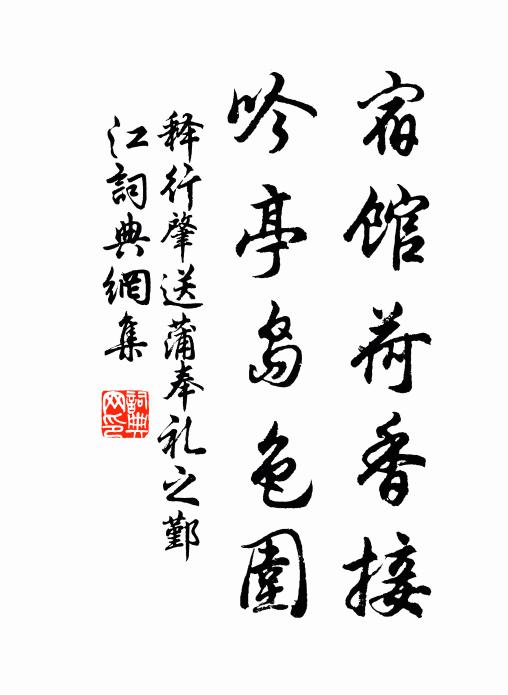 宿馆荷香接
吟亭岛色围
释行肇送蒲奉礼之鄞
江词典网集
词典网印